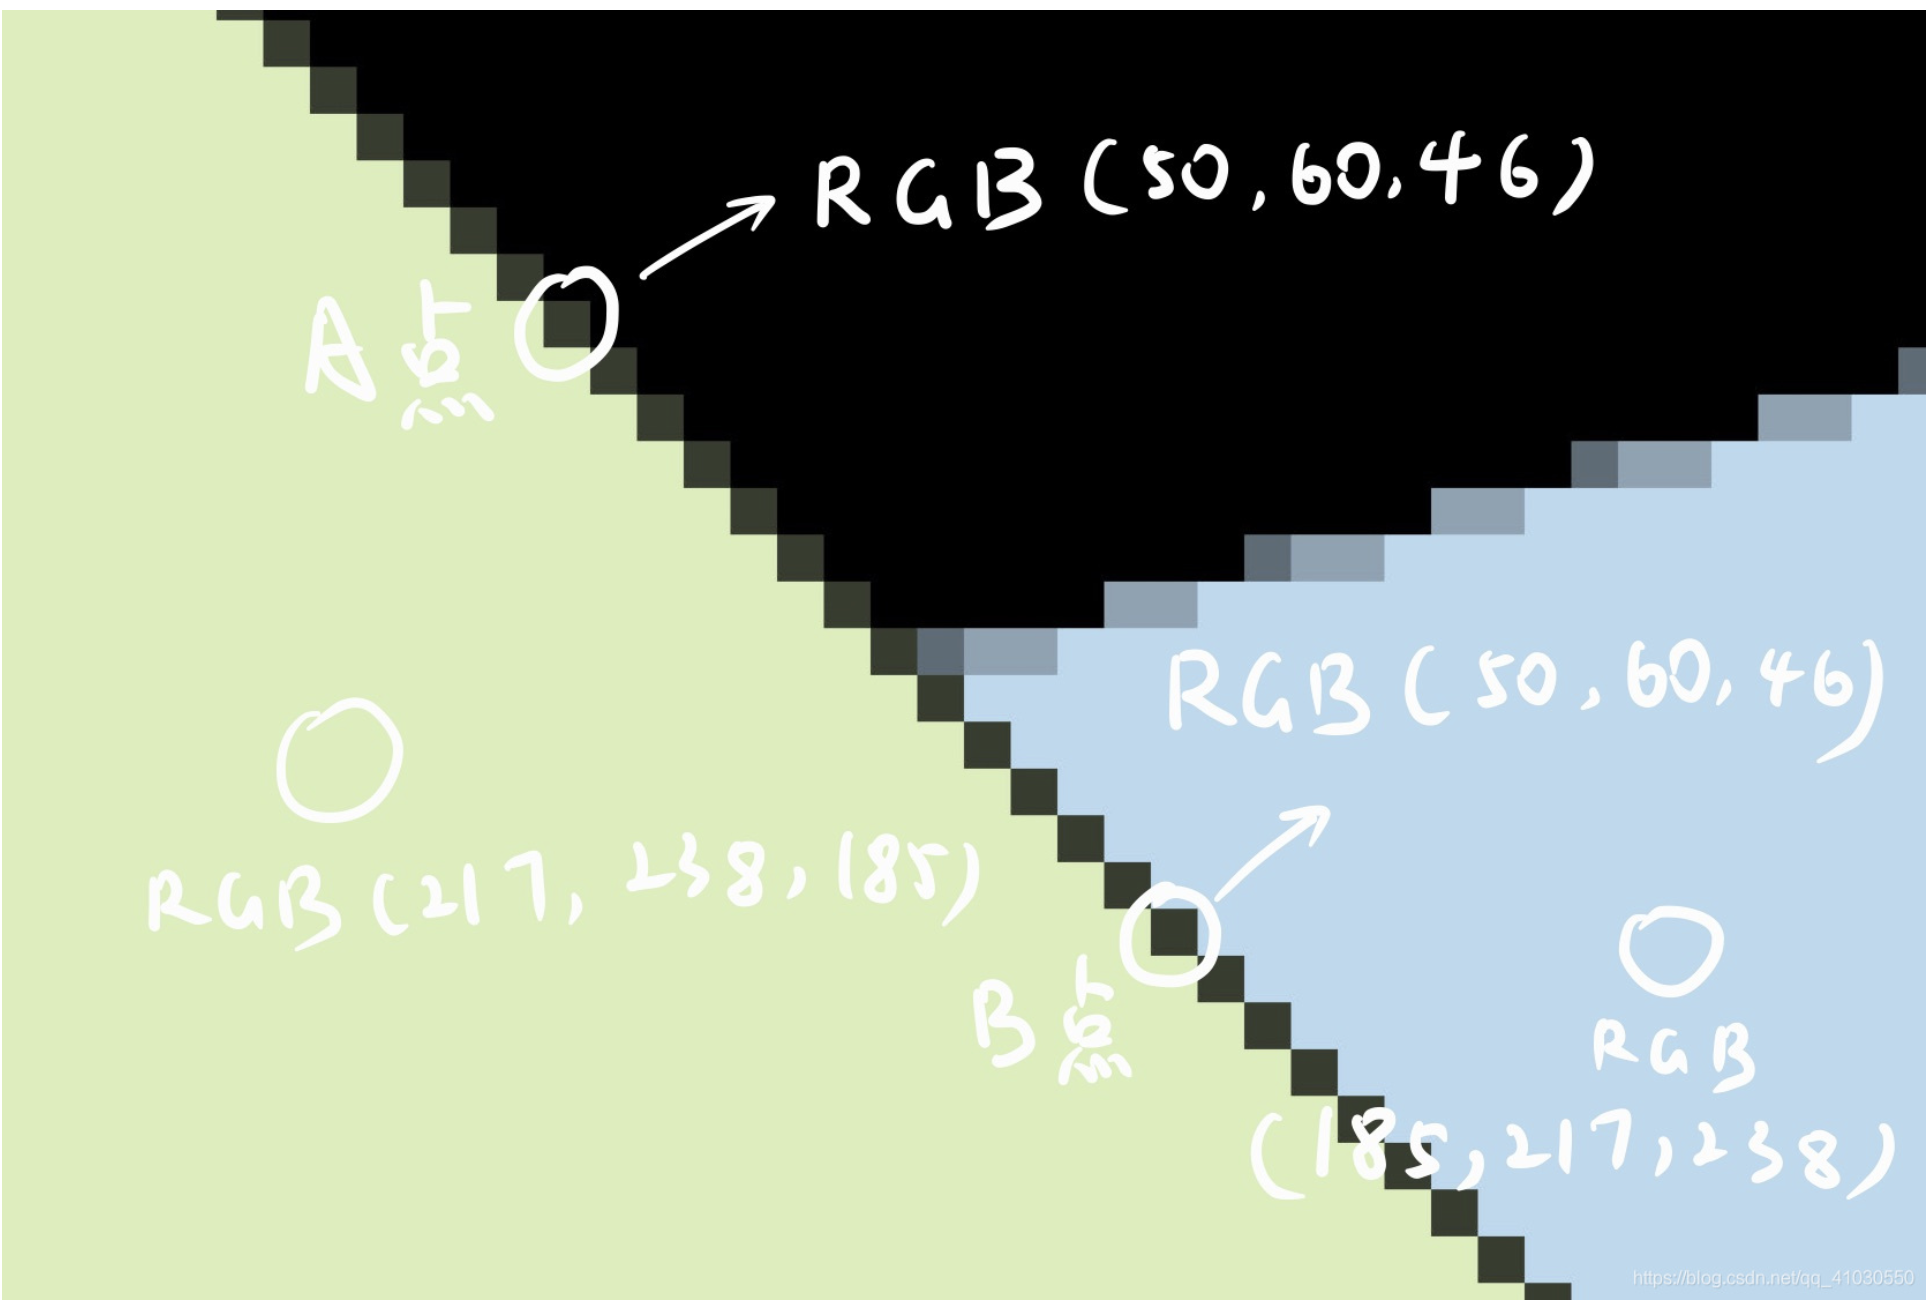 RGB (50,60,46)
A点
RGB (50,60,46)
RGB (217,238,185)
B点
RGB
(185,217,238)
https://blog.csdn.net/qq_41030550